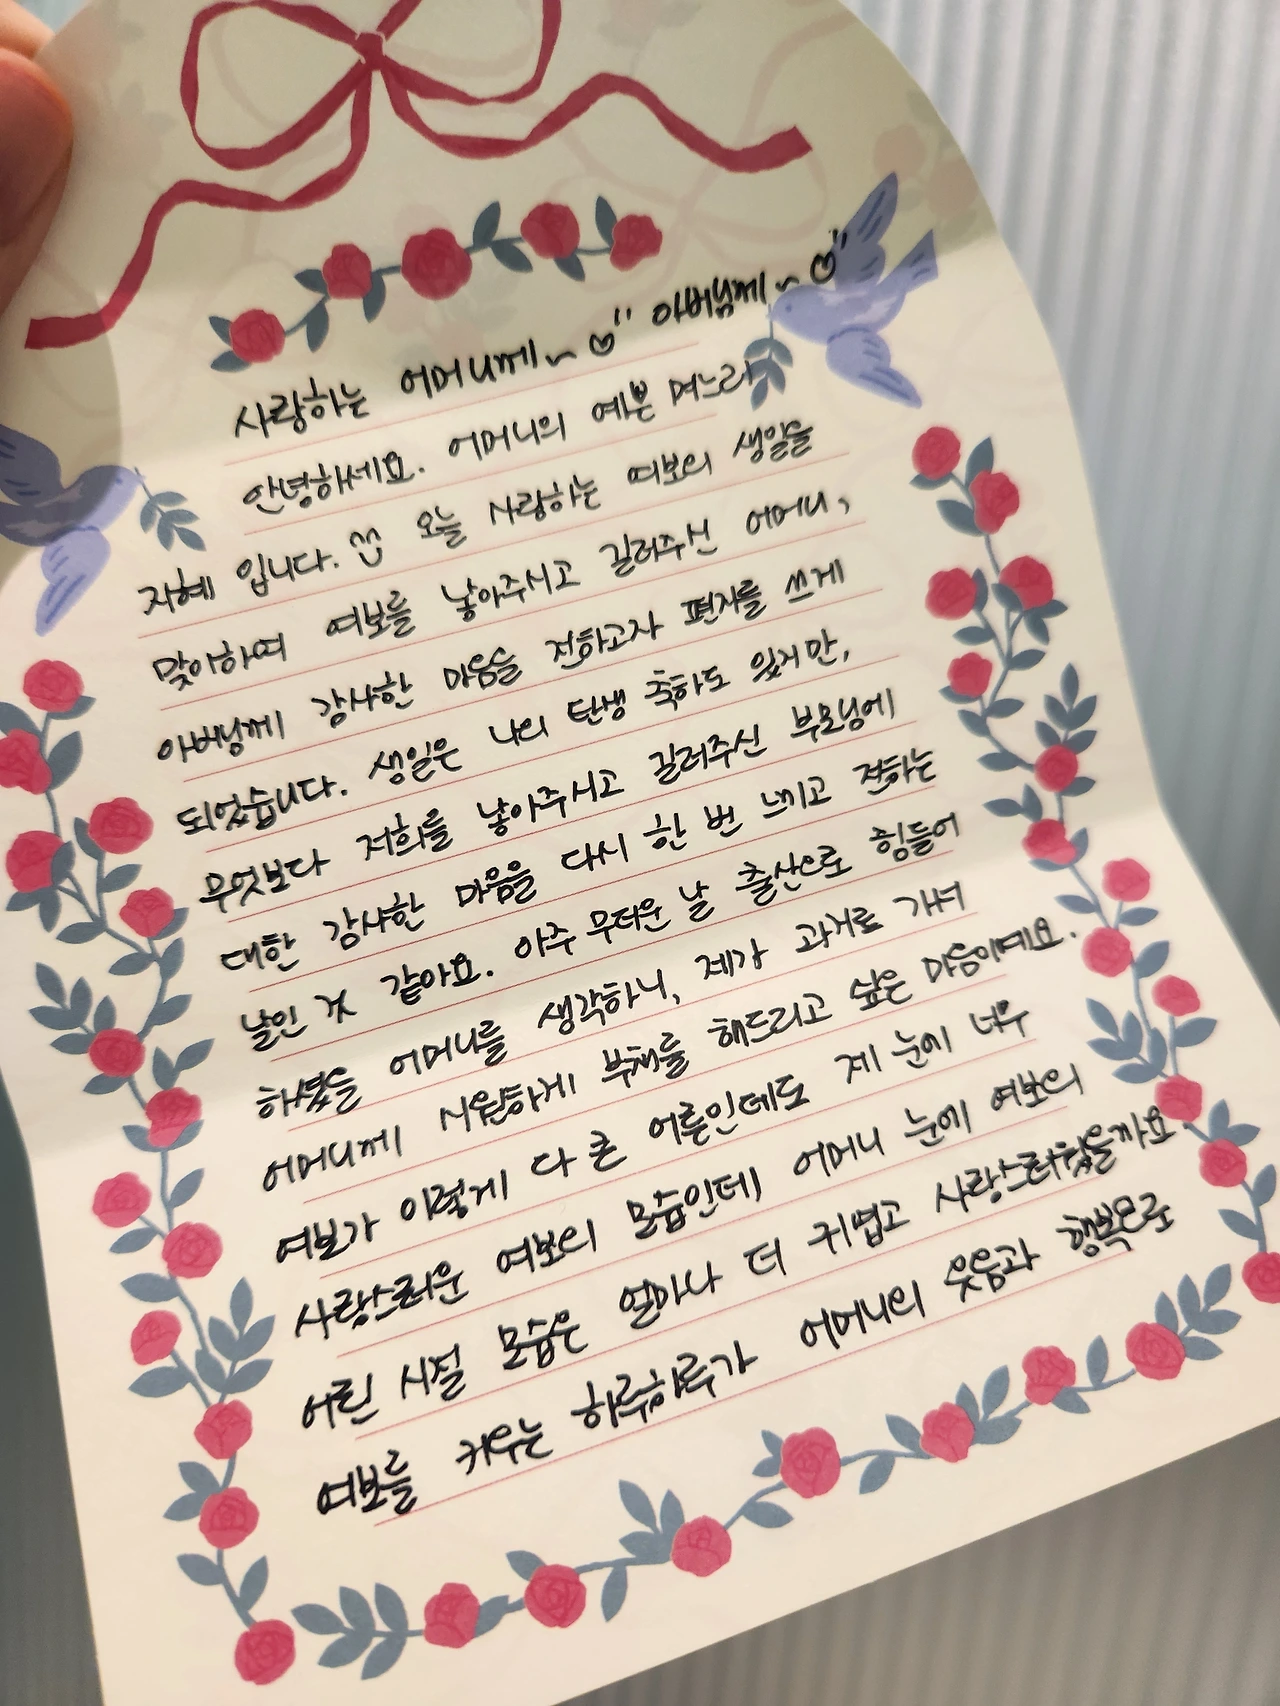 사랑하는 어머니께~ ♡ 아버님께~ ♡
안녕하세요. 어머니의 예쁜 며느리
지혜 입니다. ^^ 오늘 사랑하는 여보의 생일을
맞이하며 여보를 낳아주시고 길러주신 어머니,
아버님께 감사한 마음을 전하고자 편지를 쓰게
되었습니다. 생일은 나의 탄생 축하도 있지만,
무엇보다 저희를 낳아주시고 길러주신 부모님에
대한 감사한 마음을 다시 한 번 느끼고 전하는
날인 것 같아요. 아주 무더운 날 출산으로 힘들어
하셨을 어머니를 생각하니, 제가 과거로 가서
어머니께 시원하게 부채를 해드리고 싶은 마음이에요.
여보가 이렇게 다 큰 어른인데도 제 눈에 너무
사랑스러운 여보의 모습인데, 어머니 눈에 여보의
어린 시절 모습은 얼마나 더 귀엽고 사랑스러웠을까요.
여보를 키우는 하루하루가 어머니의 웃음과 행복으로